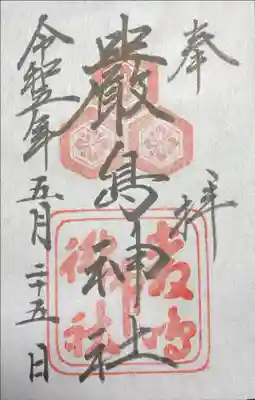 奉拝
嚴島神社
令和五年五月二十五日